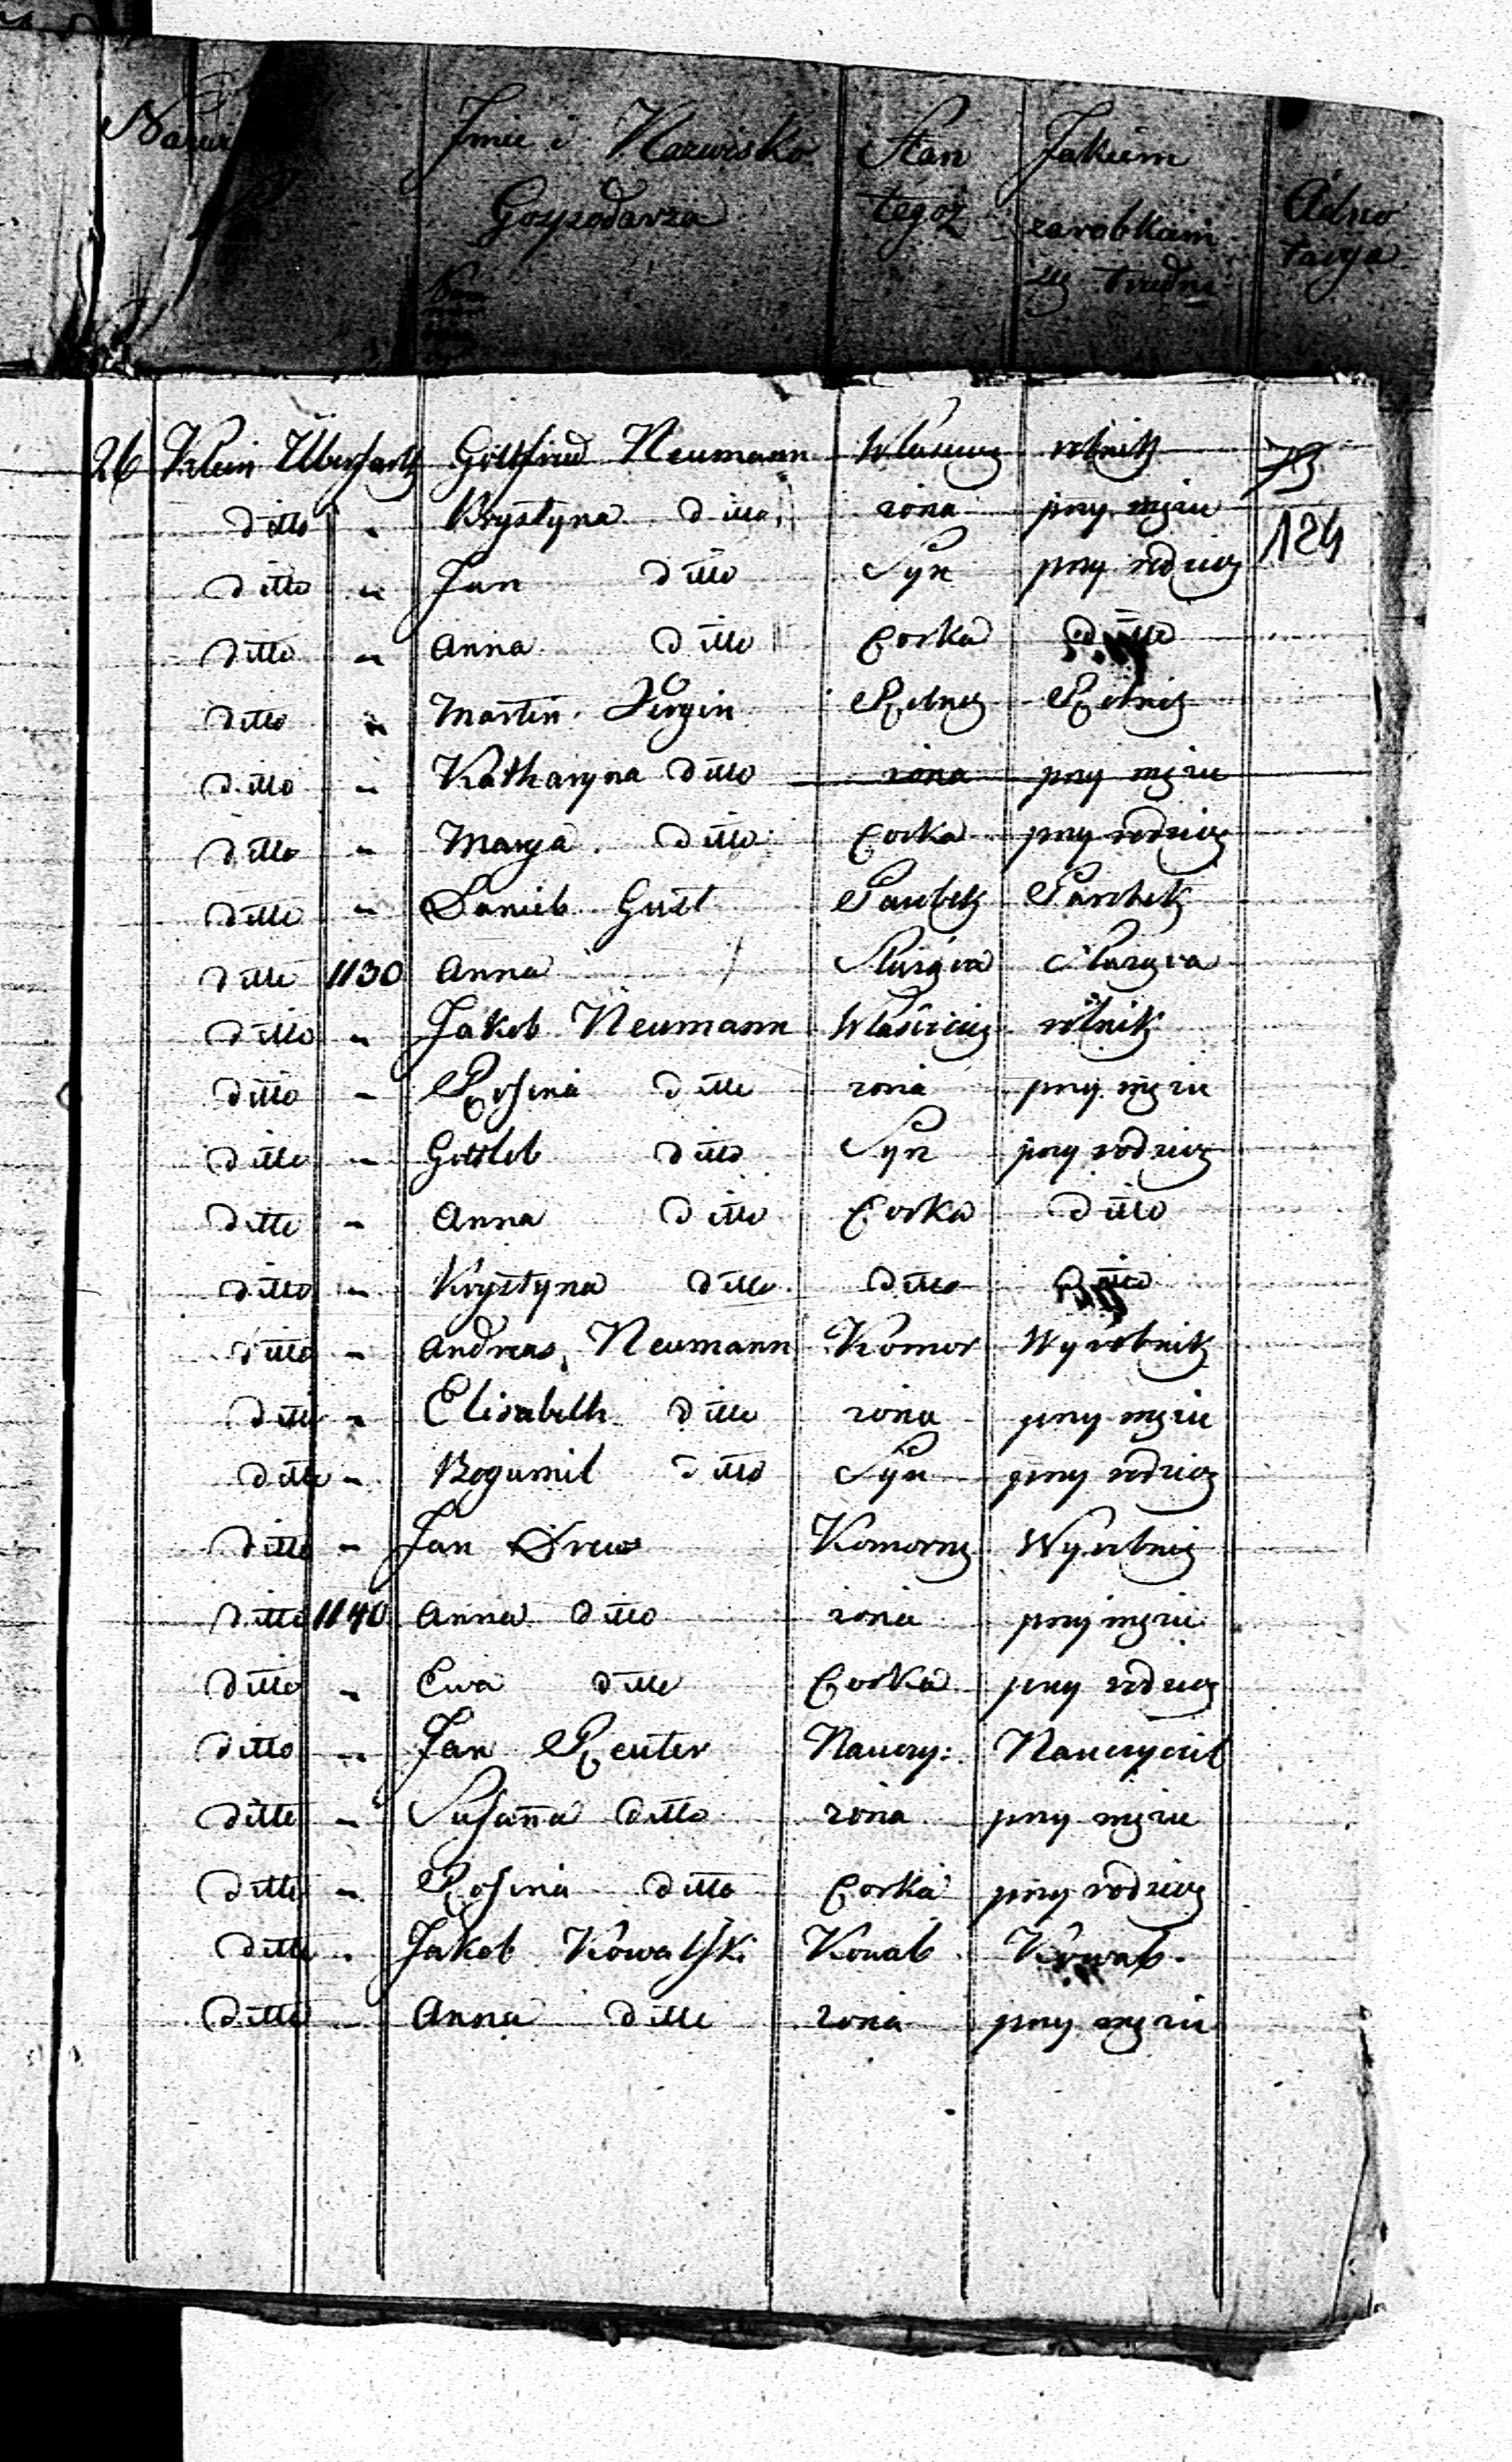 Imie i Nazwisko Gospodarza Stan tegoż Jakiem zarobkiem się trudni Adnotacya
26 Klein Gottfried Neumann rolnik
ditto " Krystyna ditto zona przy mężu 124
ditto " Jan ditto Syn przy rodzicz
ditto " Anna ditto Corka ditto
ditto " Martin Rolnig Rolnig
ditto " Katharyna ditto zona przy mężu
ditto " Marya ditto Corka przy rodzicz
ditto " Daniel Gust Parobek Parobek
ditto 1130 Anna Służąca Służąca
ditto " Jakob Neumann Właścicieg rolnik
ditto " Rosina ditto zona przy mężu
ditto " Gottleb ditto Syn przy rodzicz
ditto " Anna ditto Corka ditto
ditto " Krystyna ditto ditto ditto
ditto " Andreas Neumann Komor Wyrobnik
ditto " Elisabeth ditto zona przy mężu
ditto " Bogumil ditto Syn przy rodzicz
ditto " Jan Drews Komorng Wyrobnig
ditto 1140 Anna ditto zona przy mężu
ditto " Ewa ditto Corka przy rodzicz
ditto " Jan Reuter Nauczy: Nauczyciel
ditto " Susanna ditto zona przy mężu
ditto " Rosina ditto Corka przy rodzicz
ditto " Jakob Kowalski Kowal Kowal
ditto " Anna ditto zona przy mężu